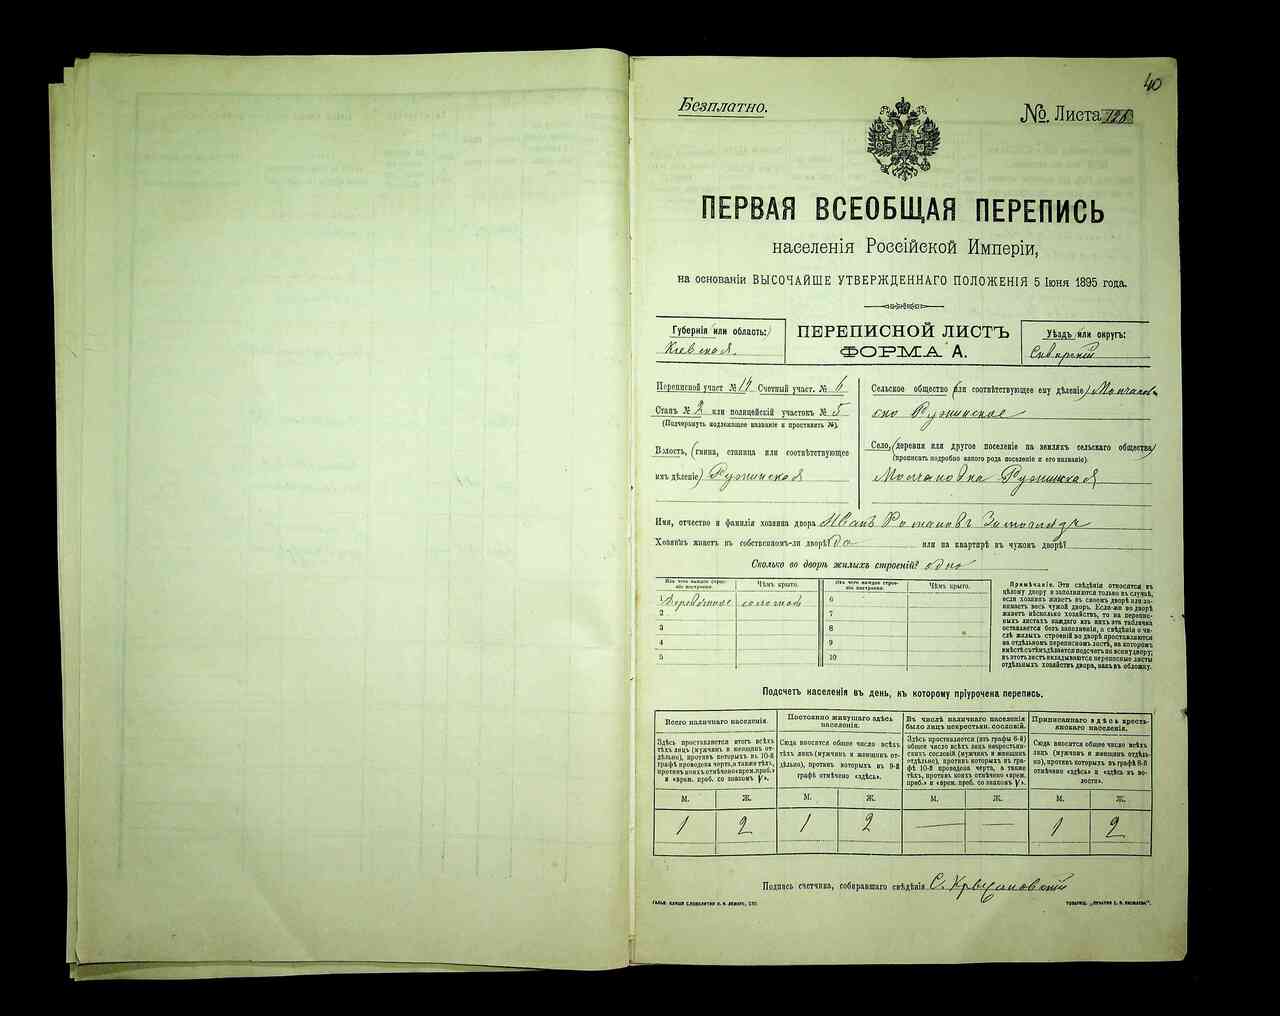 40
Безплатно.
№ Листа 128
ПЕРВАЯ ВСЕОБЩАЯ ПЕРЕПИСЬ
населенія Россійской Имперіи,
на основаніи ВЫСОЧАЙШЕ УТВЕРЖДЕННАГО ПОЛОЖЕНІЯ 5 Іюня 1895 года.
Губернія или область:
Кіевская.
ПЕРЕПИСНОЙ ЛИСТЪ
ФОРМА А.
Уѣздъ или округъ:
Сквирскій
Переписной участ № 14 Счетный участ. № 6
Станъ № 2 или полицейскій участокъ № 5
(Подчеркнуть надлежащее названіе и проставить №).
Волость, (гмина, станица или соотвѣтствующее
имъ дѣленіе) Ружинская
Сельское общество (или соотвѣтствующее ему дѣленіе) Молчанов-
ско Ружинское
Село, (деревня или другое поселеніе на земляхъ сельскаго общества)
(прописать подробно какого рода поселеніе и его названіе).
Молчановка Ружинская
Имя, отчество и фамилія хозяина двора Иванъ Романовъ
Хозяинъ живетъ въ собственномъ-ли дворѣ? да или на квартирѣ въ чужомъ дворѣ?
Сколько во дворѣ жилыхъ строеній? одно
Изъ чего каждое строе-
ніе построено.
Чѣмъ крыто.
Изъ чего каждое строе-
ніе построено.
Чѣмъ крыто.
1 Деревянное соломой 6
2 7
3 8
4 9
5 10
Примѣчаніе. Эти свѣдѣнія относятся къ
цѣлому двору и заполняются только въ случаѣ,
если хозяинъ живетъ въ своемъ дворѣ или за-
нимаетъ весь чужой дворъ. Если-же во дворѣ
живетъ нѣсколько хозяйствъ, то на перепис-
ныхъ листахъ каждаго изъ нихъ эта табличка
оставляется безъ заполненія, а свѣдѣнія о чи-
слѣ жилыхъ строеній во дворѣ проставляются
на отдѣльномъ переписномъ листѣ, на которомъ
вмѣстѣ съ тѣмъ дѣлается подсчетъ по всему двору;
въ этотъ листъ вкладываются переписные листы
отдѣльныхъ хозяйствъ двора, какъ въ обложку.
Подсчетъ населенія въ день, къ которому пріурочена перепись.
Всего наличнаго населенія.
Постоянно живущаго здѣсь
населенія.
Въ числѣ наличнаго населенія
было лицъ некрестьян. сословій.
Приписаннаго здѣсь кресть-
янскаго населенія.
Здѣсь проставляется итогъ всѣхъ
тѣхъ лицъ (мужчинъ и женщинъ от-
дѣльно), противъ которыхъ въ 10-й
графѣ проведена черта, а также тѣхъ,
противъ коихъ отмѣчено «врем. преб.»
и «врем. преб. со знакомъ V».
Сюда вносится общее число всѣхъ
тѣхъ лицъ (мужчинъ и женщинъ от-
дѣльно), противъ которыхъ въ 9-й
графѣ отмѣчено «здѣсь».
Здѣсь проставляется (изъ графы 6-й)
общее число всѣхъ лицъ некрестьян-
скихъ сословій (мужчинъ и женщинъ
отдѣльно), противъ которыхъ въ гра-
фѣ 10-й проведена черта, а также
тѣхъ, противъ коихъ отмѣчено «врем.
преб.» и «врем. преб. со знакомъ V».
Сюда вносится общее число всѣхъ
лицъ (мужчинъ и женщинъ отдѣль-
но), противъ которыхъ въ графѣ 8-й
отмѣчено «здѣсь» и «здѣсь въ во-
лости».
М. Ж. М. Ж. М. Ж. М. Ж.
1 2 1 2 — — 1 2
Подпись счетчика, собиравшаго свѣдѣнія С. Крыжановскій